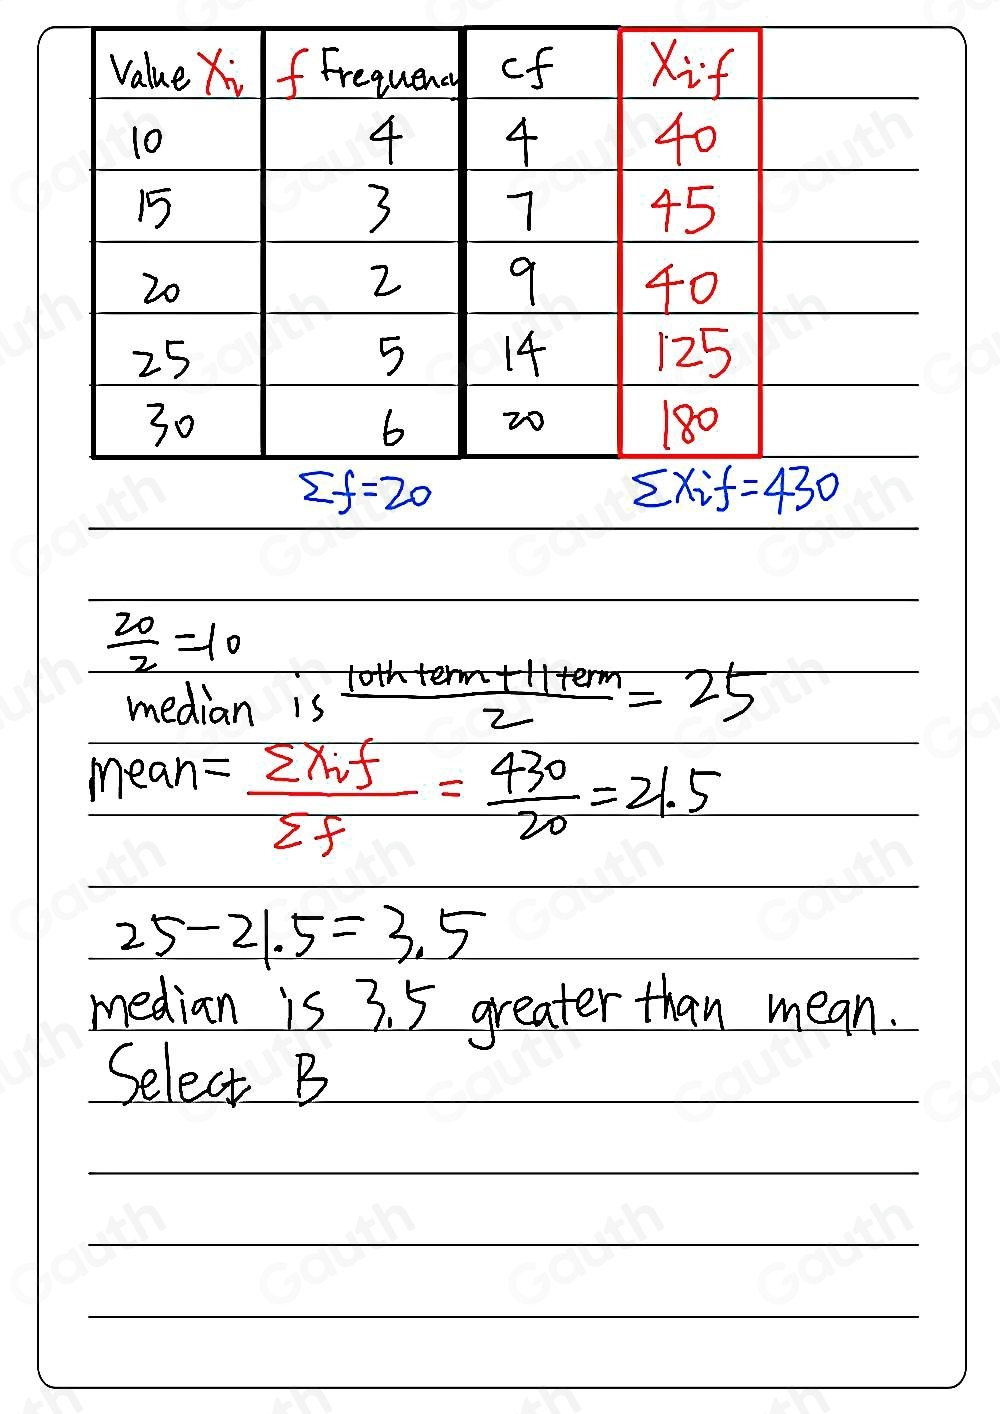 Value Xi f Frequency cf Xi·f
10 4 4 40
15 3 7 45
20 2 9 40
25 5 14 125
30 6 20 180
Σf=20 ΣXif=430
20/2 =10
median is (10th term+11term)/2 = 25
mean= ΣXif/Σf = 430/20 =21.5
25-21.5=3.5
median is 3.5 greater than mean.
Select B